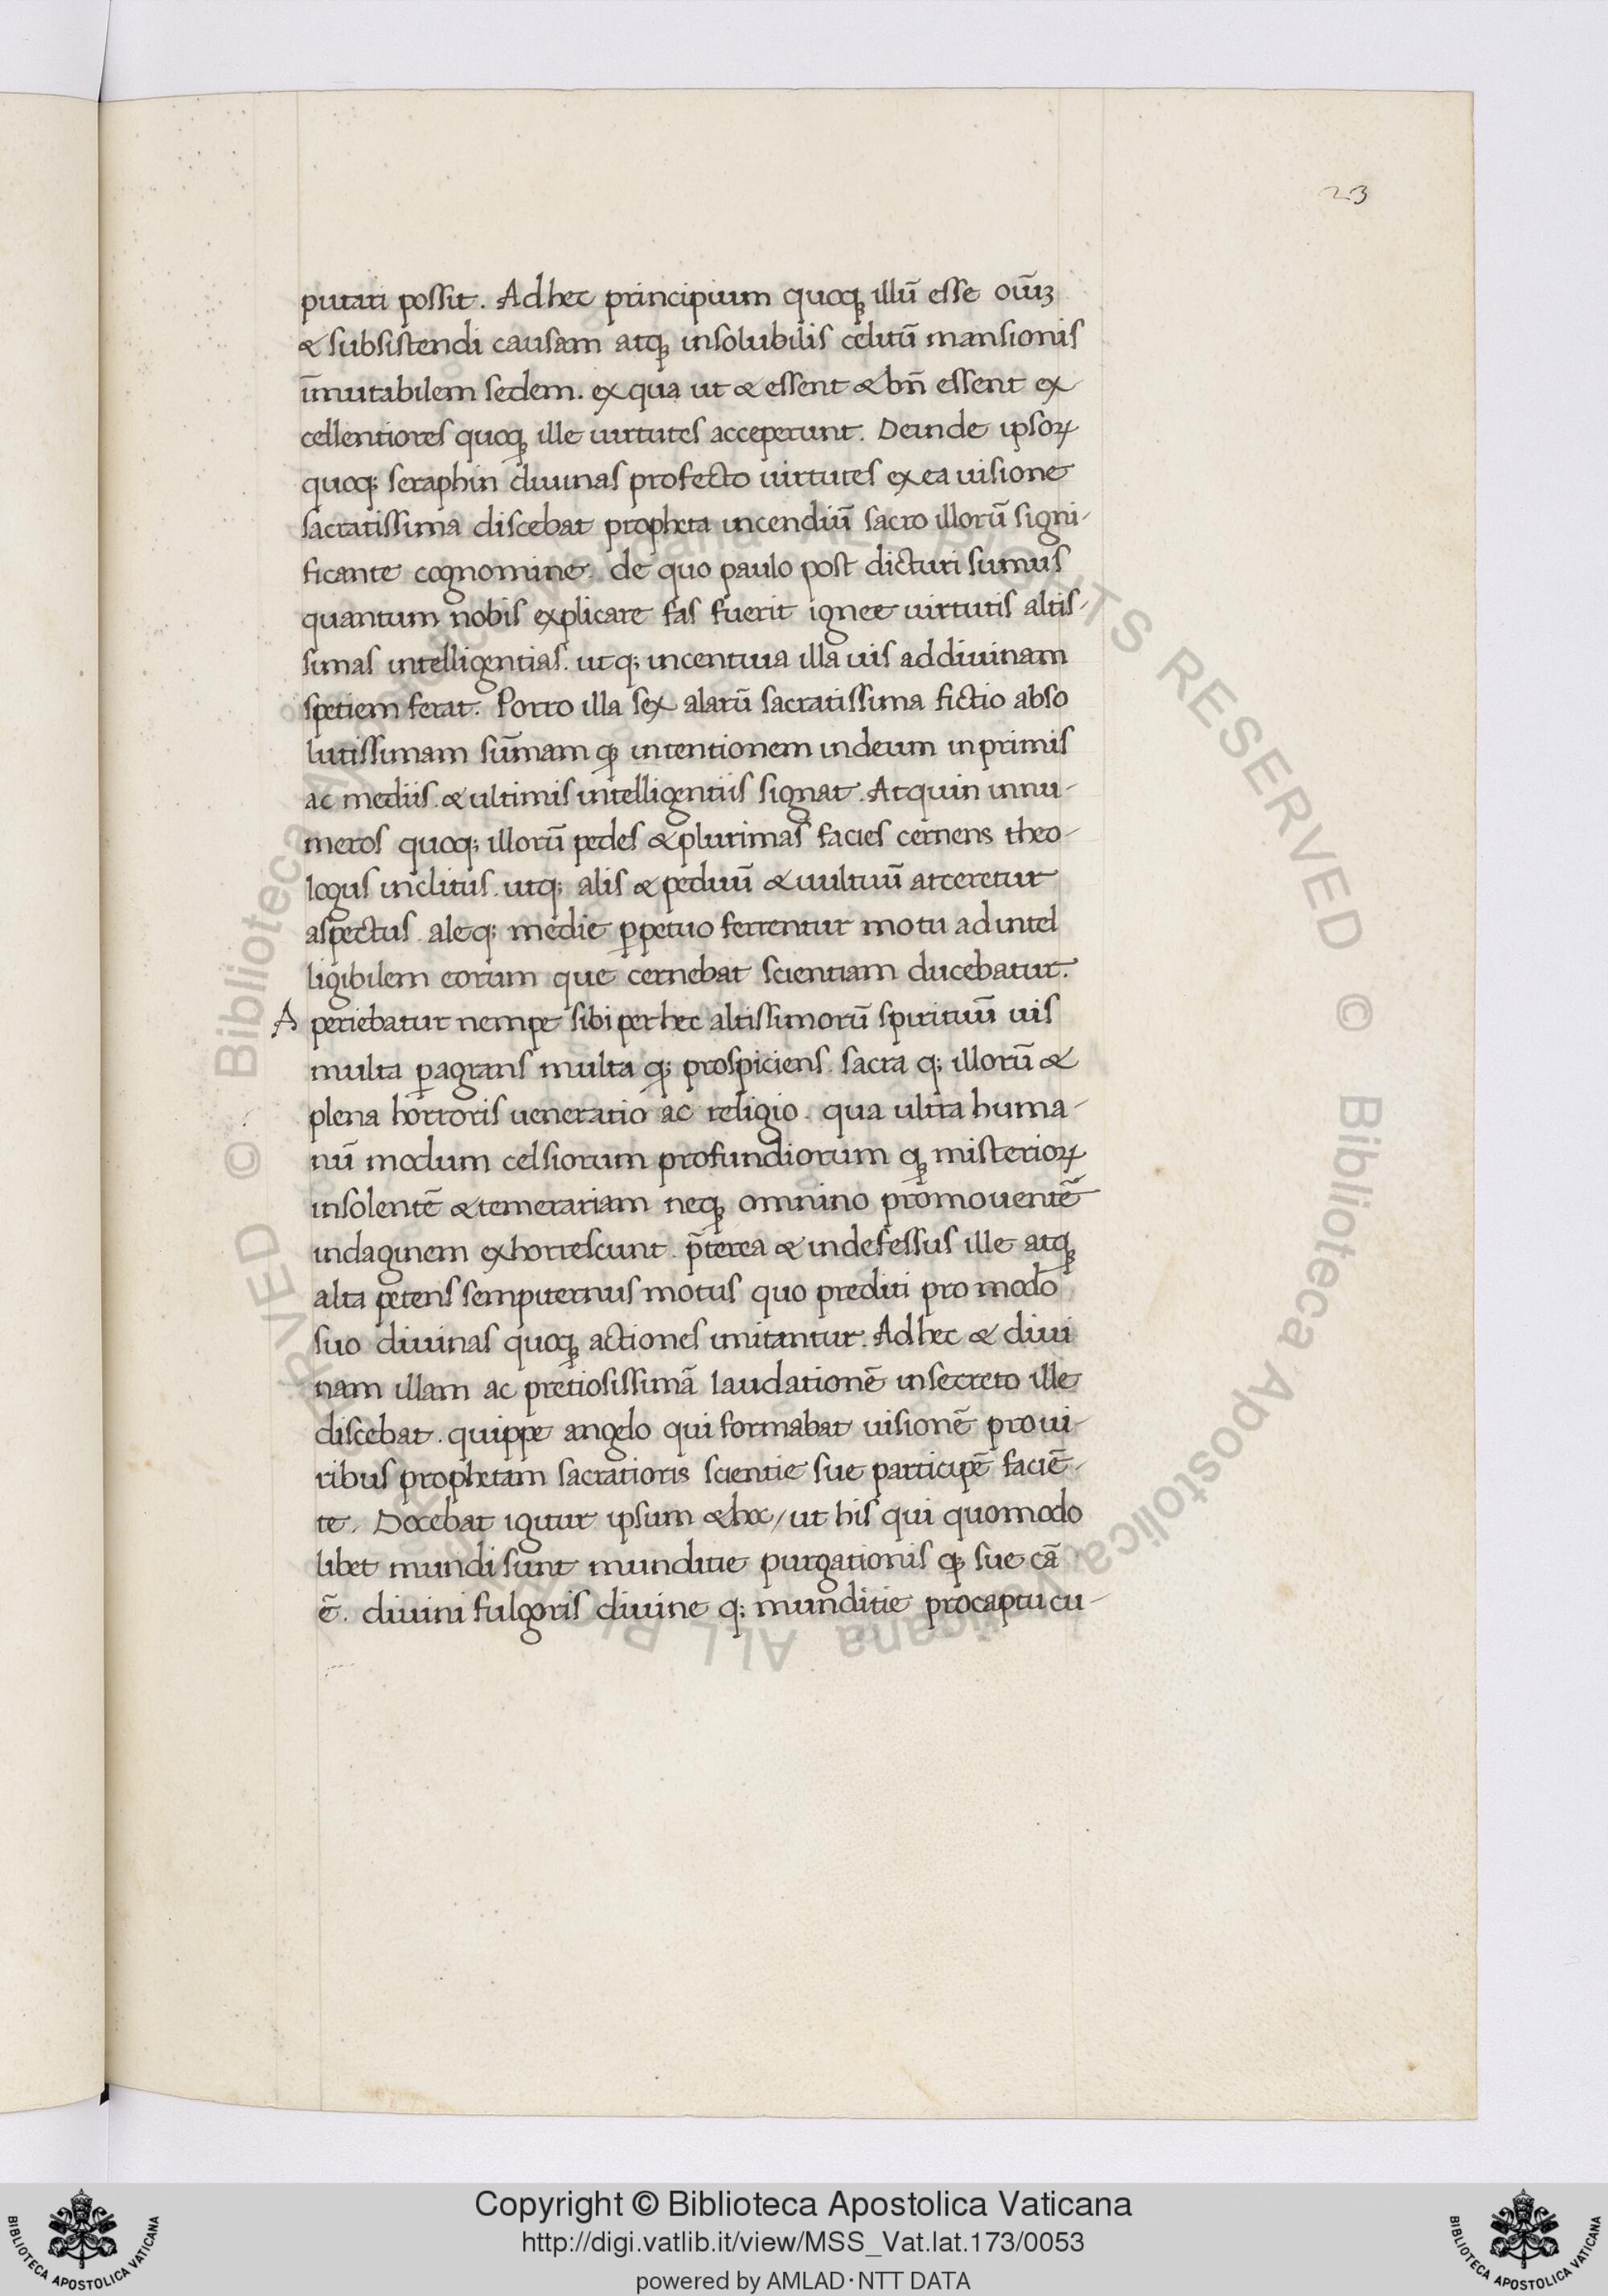 23
putari possit. Ad hec principium quoq; illū esse oīuꝫ
& subsistendi causam atq; insolubilis celitū mansionis
īmutabilem sedem. ex qua ut & essent & bñ essent ex-
cellentiores quoq; ille uirtutes acceperunt. Deinde ipsoꝝ
quoq; seraphin diuinas profecto uirtutes ex ea uisione
sacratissima discebat propheta incendiū sacro illorū signi-
ficante cognomine. de quo paulo post dicturi sumus
quantum nobis explicare fas fuerit ignee uirtutis altis-
simas intelligentias. utq; incentiua illa uis ad diuinam
spetiem ferat. Porro illa sex alarū sacratissima fictio abso
lutissimam sūmam q; intentionem in deum in primis
ac mediis. & ultimis intelligentiis signat. Atquin innu-
meros quoq; illorū pedes & plurimas facies cernens theo-
logus inclitus. utq; alis & peduū & uultuū arceretur
aspectus. aleq; medie ꝑpetuo ferrentur motu ad intel
ligibilem eorum que cernebat scientiam ducebatur.
A periebatur nempe sibi per hec altissimorū spirituū uis
multa ꝑagrans multa q; prospiciens. sacra q; illorū &
plena horroris ueneratio ac religio. qua ultra huma-
nū modum celsiorum profundiorum q; misterioꝝ
insolentē & temerariam neq; omnino promouentē
indaginem exhorrescunt. p̄terea & indefessus ille atq;
alta petens sempiternus motus quo prediti pro modo
suo diuinas quoq; actiones imitantur. Ad hec & diui
nam illam ac pretiosissimā laudationē in secreto ille
discebat. quippe angelo qui formabat uisionē pro ui-
ribus prophetam sacratioris scientie sue participē faciē-
te. Docebat igitur ipsum & hoc/ ut his qui quomodo
libet mundi sunt munditie purgationis q; sue cā
ē. diuini fulgoris diuine q; munditie pro captu cu-
© Biblioteca Apostolica Vaticana ALL RIGHTS RESERVED
© Biblioteca Apostolica Vaticana ALL RIGHTS RESERVED
Copyright © Biblioteca Apostolica Vaticana
http://digi.vatlib.it/view/MSS_Vat.lat.173/0053
powered by AMLAD·NTT DATA
BIBLIOTECA APOSTOLICA VATICANA
BIBLIOTECA APOSTOLICA VATICANA